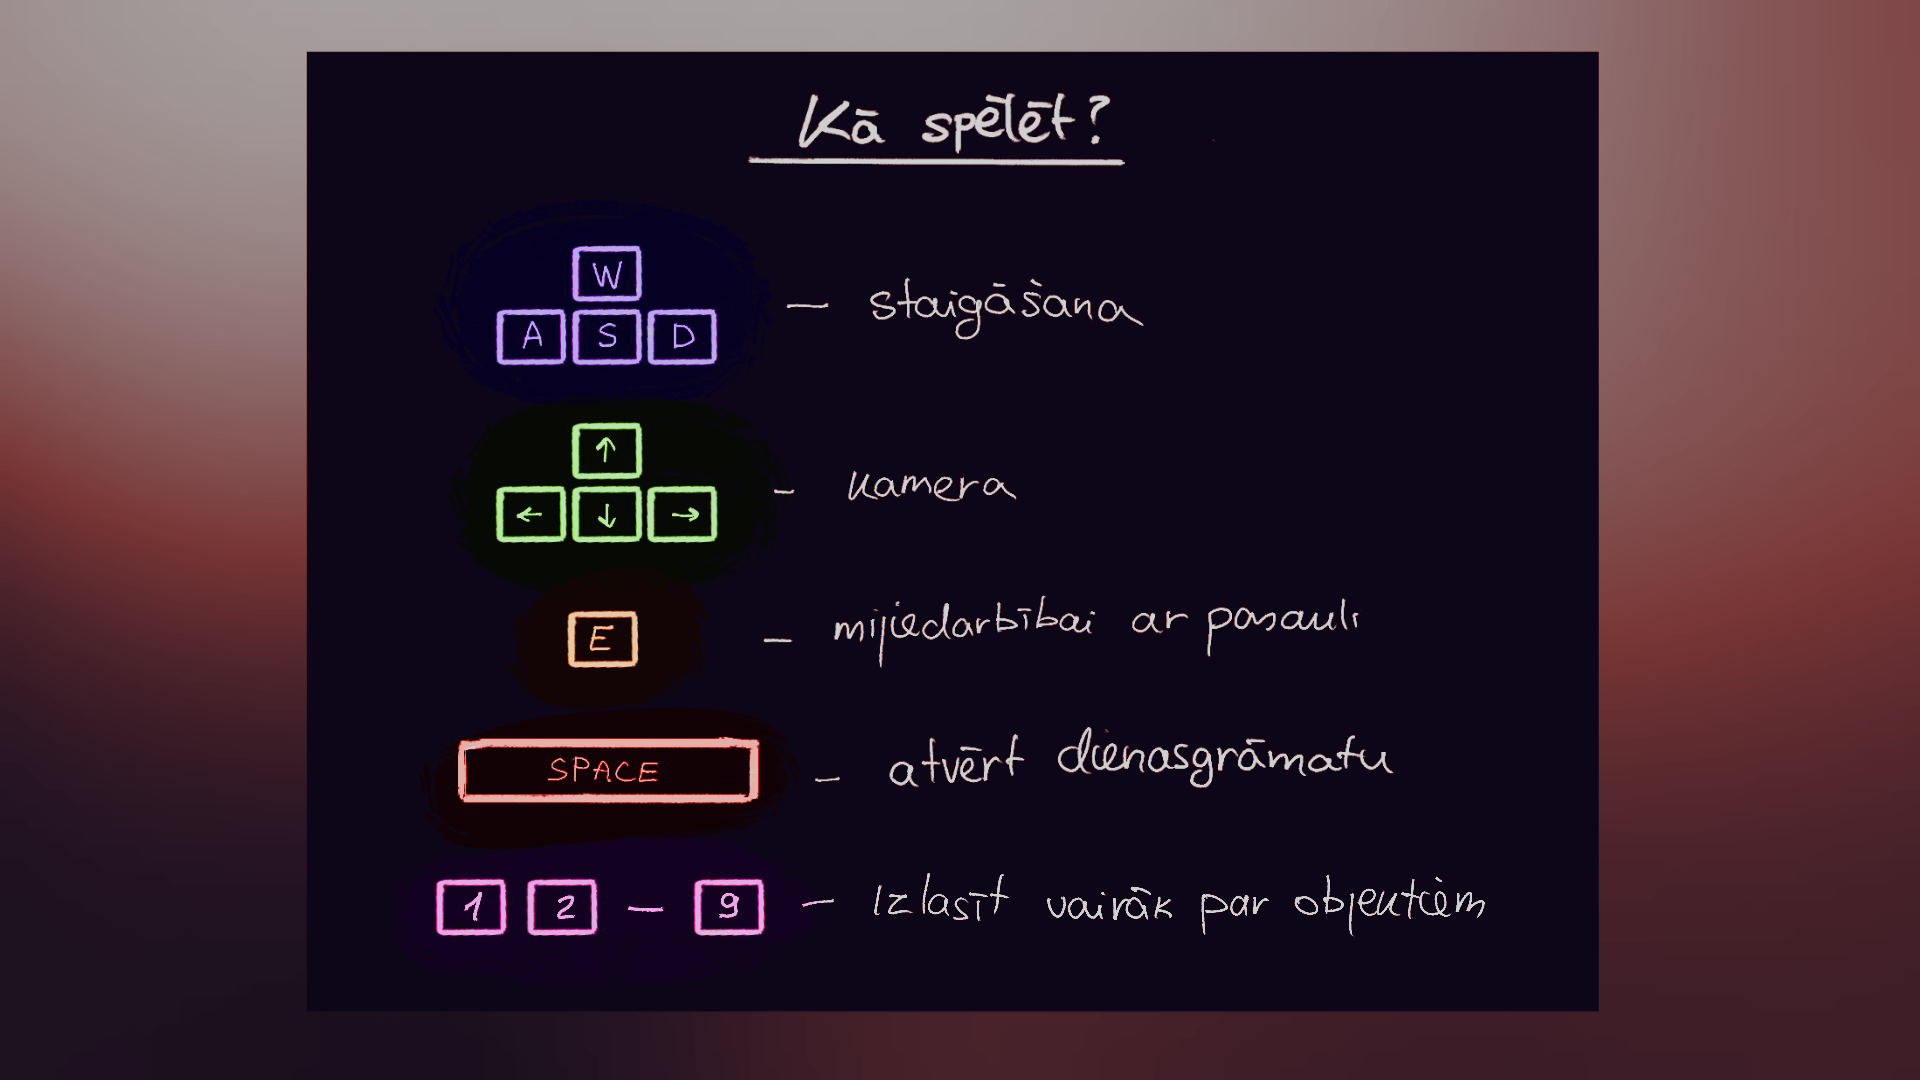 Kā spēlēt?
W
A S D — staigāšana
↑
← ↓ → - kamera
E - mijiedarbībai ar pasauli
SPACE - atvērt dienasgrāmatu
1 2 — 9 - Izlasīt vairāk par objektiem